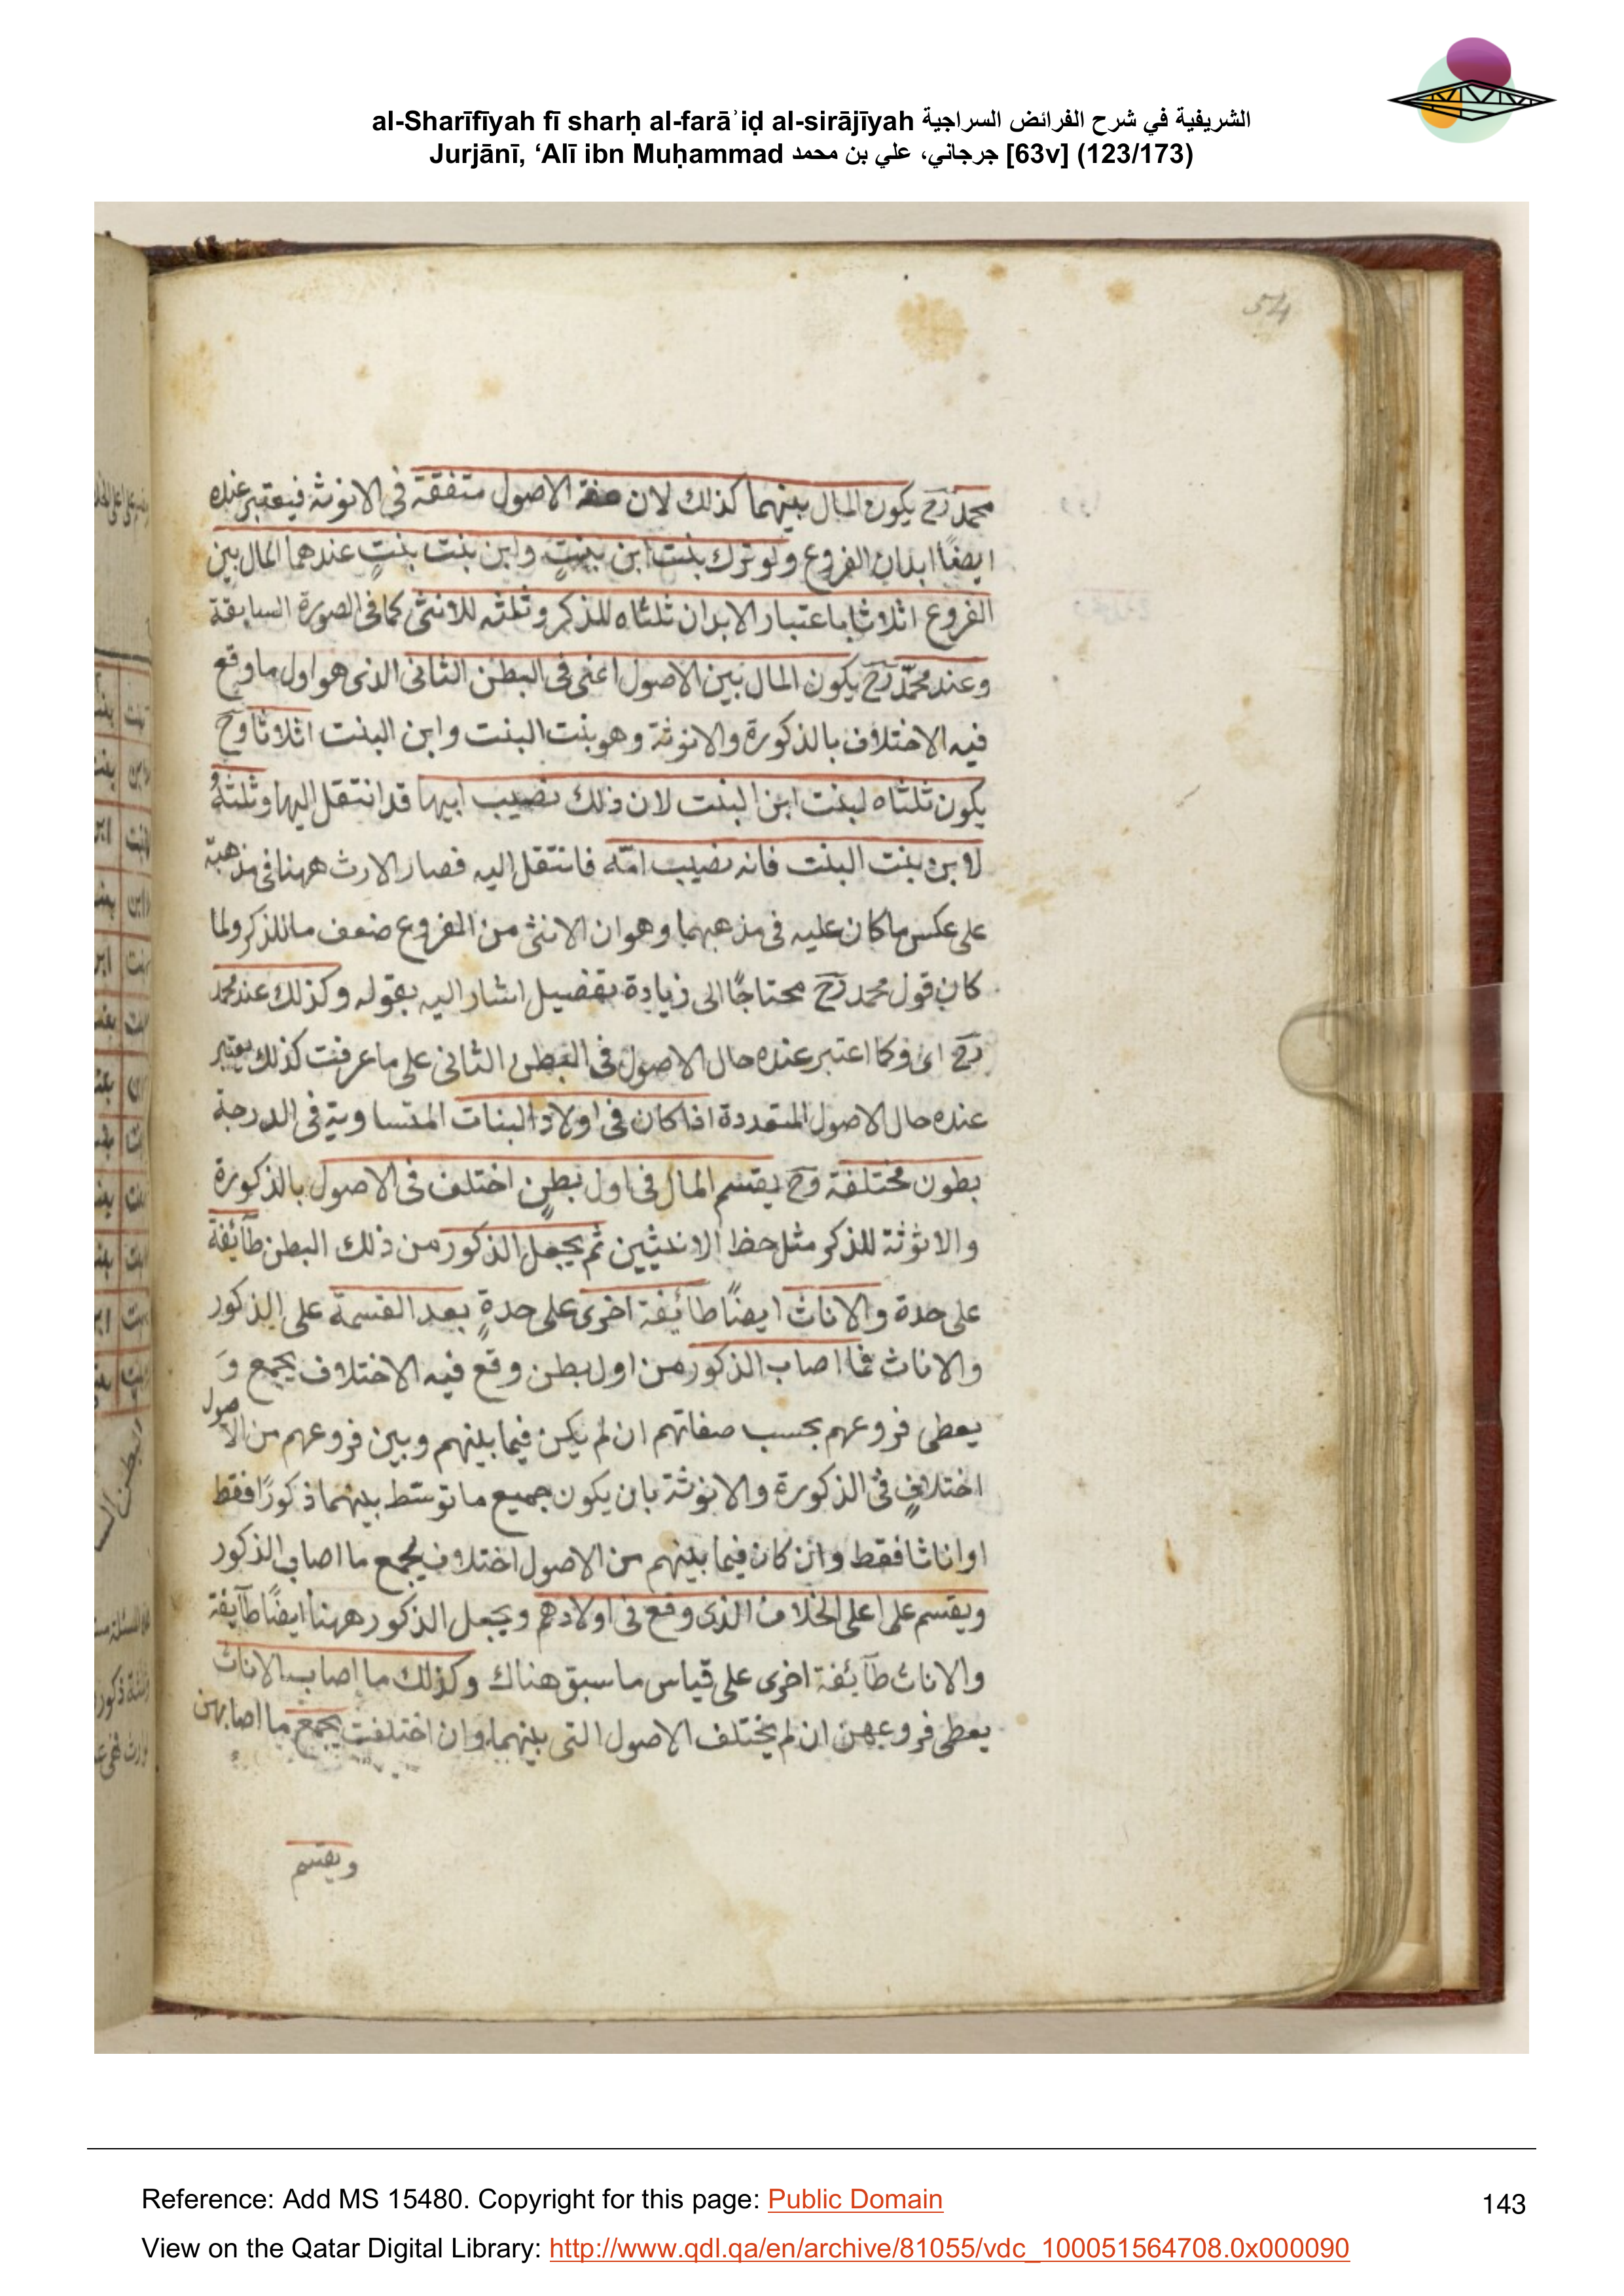 al-Sharīfīyah fī sharḥ al-farāʾiḍ al-sirājīyah الشريفية في شرح الفرائض السراجية
Jurjānī, ‘Alī ibn Muḥammad جرجاني، علي بن محمد [63v] (123/173)
54
محمد رح يكون المال بينهما كذلك لان صفة الاصول متفقة فى الانوثة فيعتبر عنده
ايضًا ابدان الفروع ولو ترك بنت ابن بنتٍ وابن بنت بنتٍ عندهما المال بين
الفروع اثلاثا باعتبار الابدان ثلثاه للذكر وثلثه للانثى كما فى الصورة السابقة
وعند محمّد رح يكون المال بين الاصول اعنى فى البطن الثانى الذى هو اول ما وقع
فيه الاختلاف بالذكورة والانوثة وهو بنت البنت وابن البنت اثلاثا وح
يكون ثلثاه لبنت ابن البنت لان ذلك نصيب ابيها قد انتقل اليها وثلثهُ
لابن بنت البنت فانه نصيب امّه فانتقل اليه فصار الارث ههنا فى مذهبة
على عكس ما كان عليه فى مذهبهما وهو ان الانثى من الفروع ضعف ما للذكر ولما
كان قول محمد رح محتاجًا الى زيادة تفضيل اشار اليه بقوله وكذلك عند محمد
رح اى وكما اعتبر عنده حال الاصول فى البطن الثانى على ما عرفت كذلك يعتبر
عنده حال الاصول المتعددة اذا كان فى اولاد البنات المتساوية فى الدرجة
بطون مختلفة وح يقتسم المال فى اول بطنٍ اختلف فى الاصول بالذكورة
والانوثة للذكر مثل حظ الانثيين ثم يجعل الذكور من ذلك البطن طآئفة
على حدة والاناث ايضًا طائفة اخرى على حدةٍ بعد القسمة على الذكور
والاناث فما اصاب الذكور من اول بطن وقع فيه الاختلاف يجمع وَ
يعطى فروعهم بحسب صفاتهم ان لم يكن فيما بينهم وبين فروعهم من الاصول
اختلافٍ فى الذكورة والانوثة بان يكون جميع ما توسّط بينهما ذكورًا فقط
او اناثا فقط وان كان فيما بينهم من الاصول اختلاف يجمع ما اصاب الذكور
ويقسم على اعلى الخلاف الذى وقع فى اولادهم ويجعل الذكور ههنا ايضًا طآيفة
والاناث طآئفة اخرى على قياس ما سبق هناك وكذلك ما اصاب الاناث
يعطى فروعهن ان لم يختلف الاصول التى بينهما وان اختلفت يجمع ما اصابهن
ويقسم
Reference: Add MS 15480. Copyright for this page: Public Domain
143
View on the Qatar Digital Library: http://www.qdl.qa/en/archive/81055/vdc_100051564708.0x000090